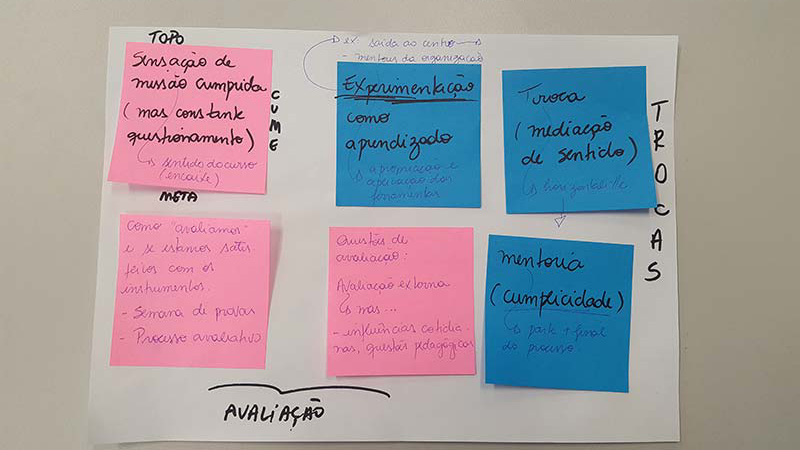 TOPO
Sensação de
missão cumprida
(mas constante
questionamento)
↳ sentido do curso
(encaixe)
CUME
META
ex: saída ao centro →
- mentores da organização
Experimentação
como
aprendizado
↳ apropriação e
aplicação das
ferramentas
Troca
(mediação
de sentido)
↳
TROCAS
Como "avaliamos"
e se estamos satis-
feitos com os
instrumentos.
- Semana de provas
- Processo avaliativo
Questões de
avaliação:
Avaliação externa
↳ mas...
- influências cotidia-
nas, questões pedagógicas
mentoria
(cumplicidade)
↳ parte + final
do processo.
AVALIAÇÃO